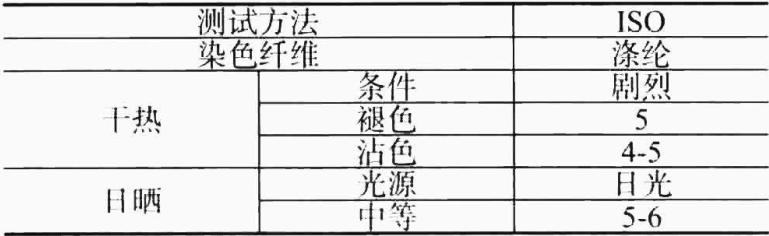 测试方法 ISO
染色纤维 涤纶
条件 剧烈
干热 褪色 5
沾色 4-5
光源 日光
日晒 中等 5-6